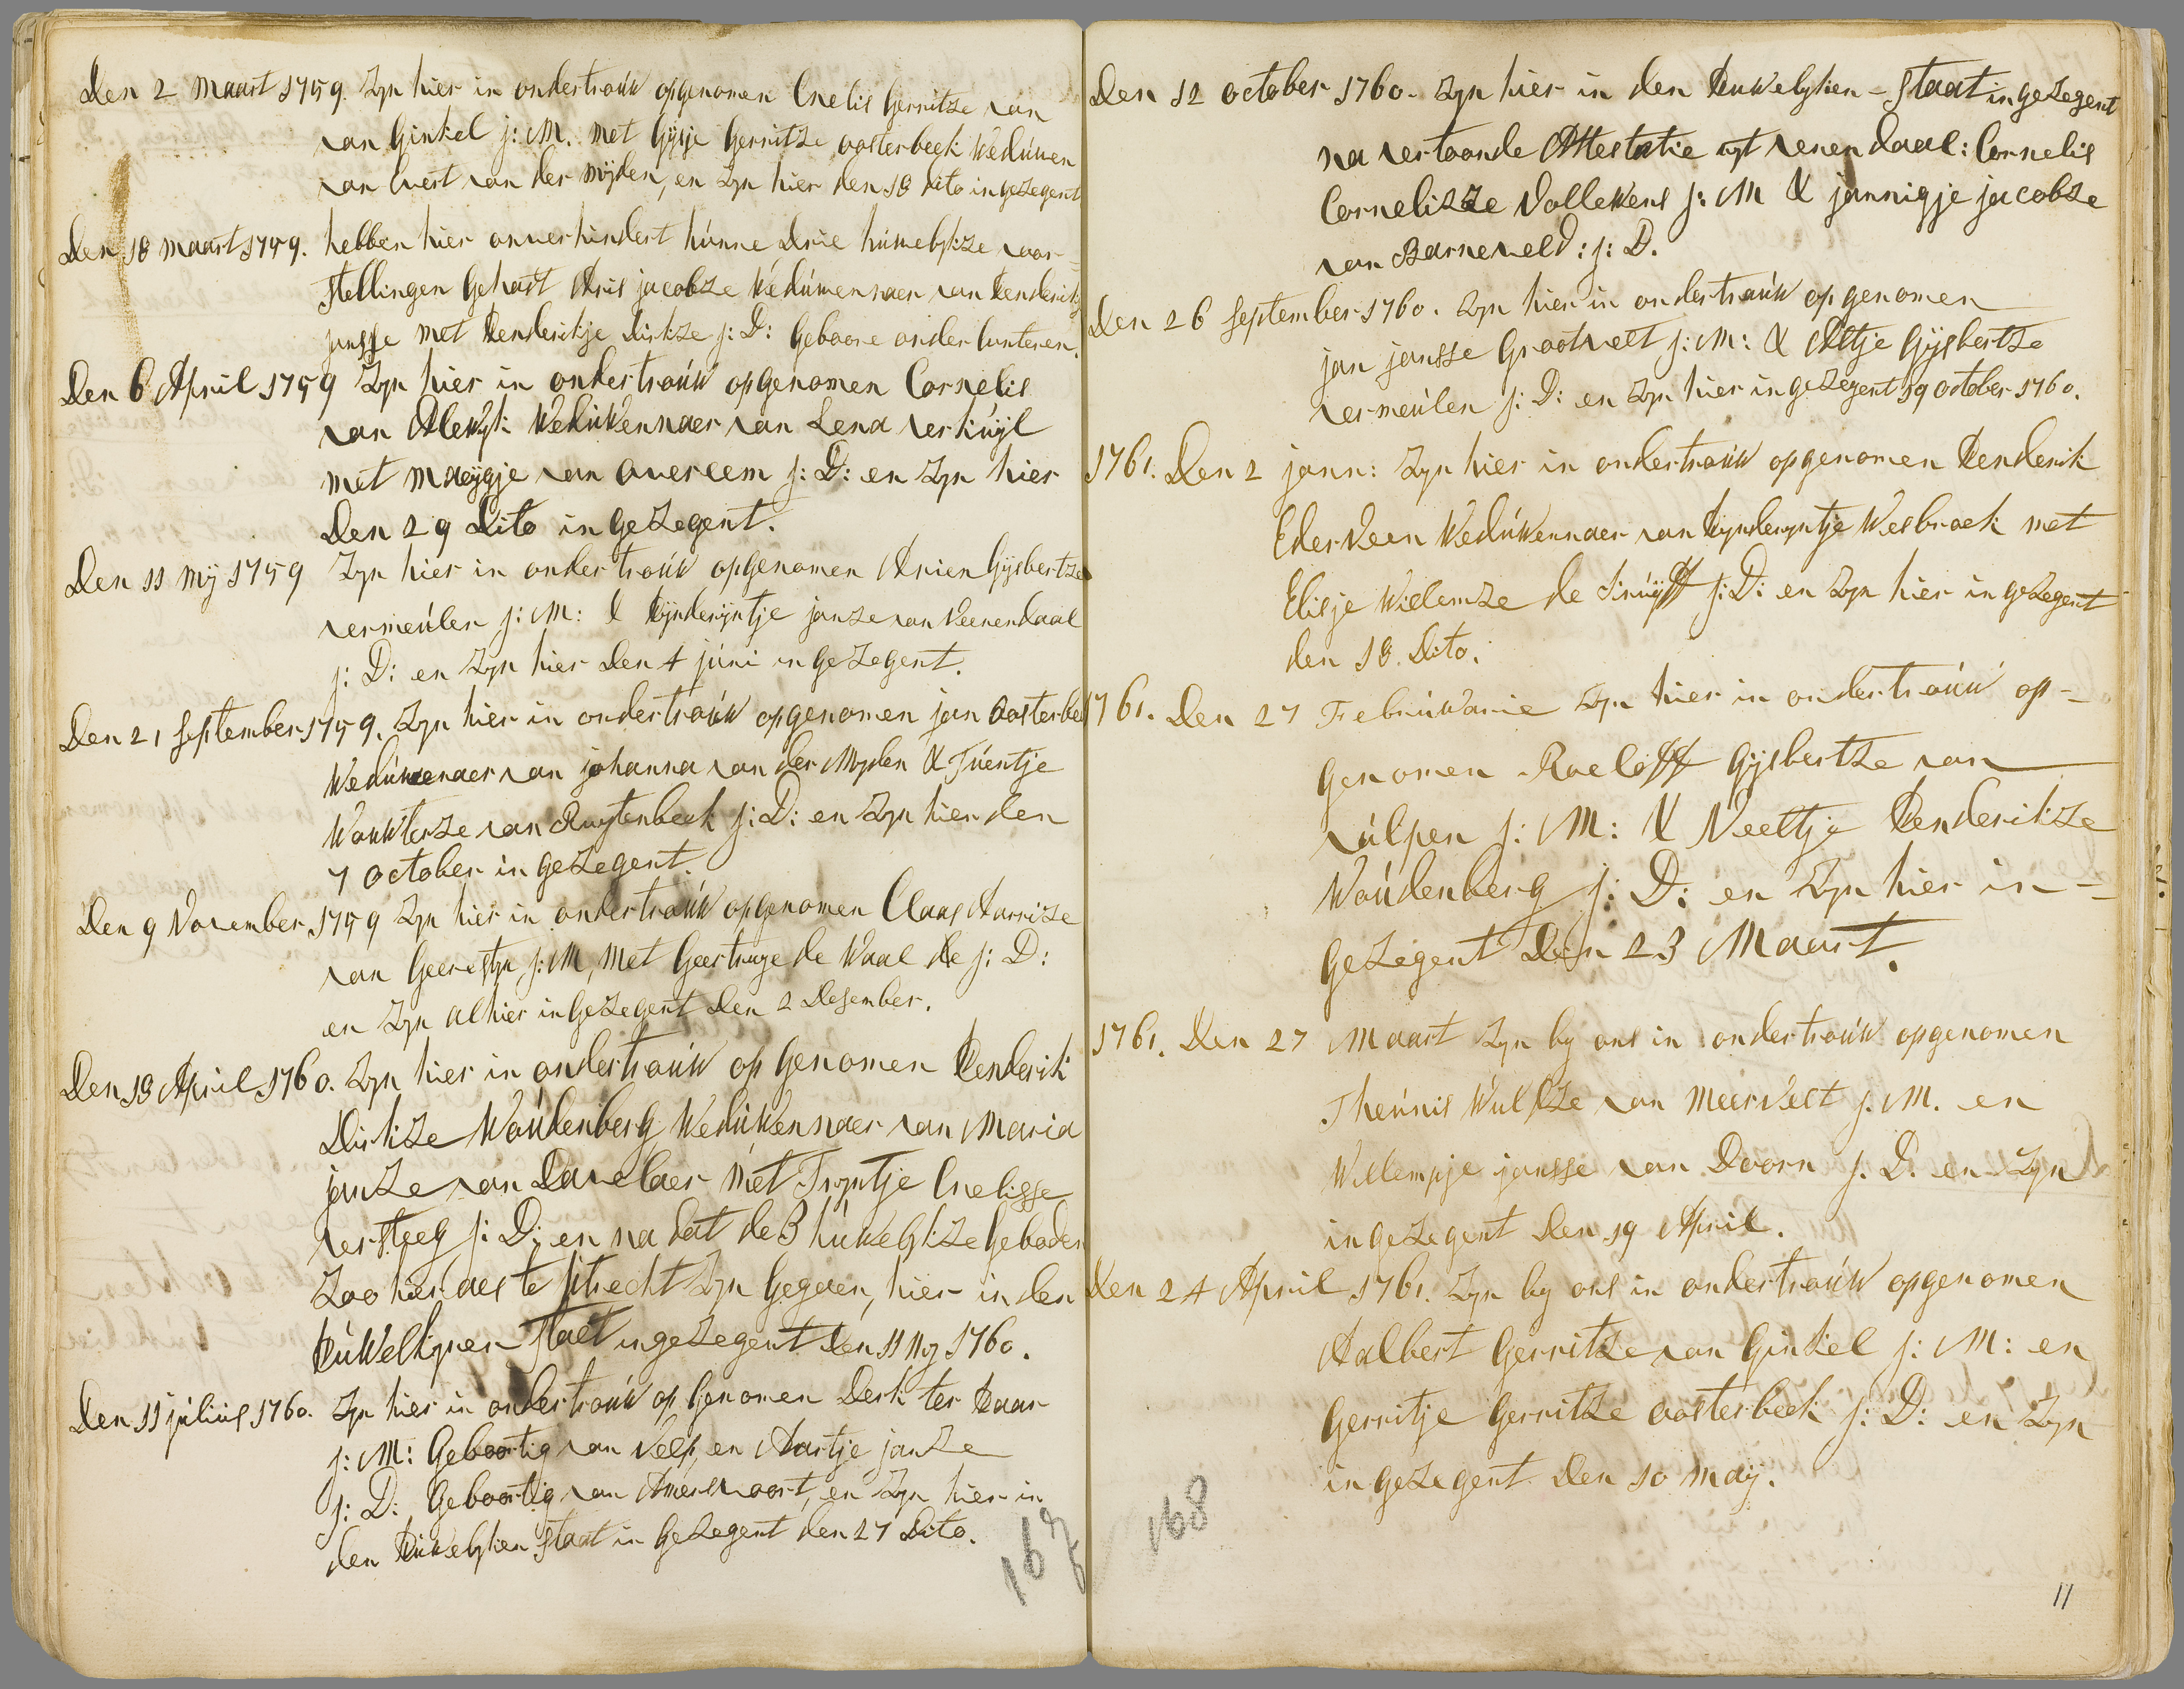 Den 2 Maart 1759. Zyn hier in ondertroúw opgenomen Cnelis Gerritze van
van Ginkel j: M. met Gijsje Gerritze oosterbeek Wedúwen
van Evert van der Mijden, en Zyn hier den 18 dito ingezegent
Den 18 Maart 1759. hebben hier onverhindert húnne Drie húwelykze voor=
stellingen Gehast Aris jacobze Wedúwennaer van Henderikje
jansse met Henderikje Dirkze j: D: Geboore onder Lunteren.
Den 6 April 1759 Zyn hier in ondertroúw opgenomen Cornelis
van Alewyk Weduwennaer van Lena verkúyl
met Maeygje van Overeem j: D: en Zyn hier
Den 29 Dito in Gezegent.
Den 11 Mij 1759 Zyn hier in ondertroúw opgenomen Arien Gijsbertze
vermeúlen j: M: & Hynderijntje janze van Veenendaal
j: D: en Zyn hier Den 4 júni in Gezegent.
Den 21 September 1759. Zyn hier in ondertroúw opgenomen jan Oosterbe
Wedúwenaer van johanna van der Myden & Túentje
Wouwterze van Ruytenbeek j: D: en Zyn hier den
7 October in Gezegent.
Den 9 November 1759 Zyn hier in ondertroúw opgenomen Claas Harrize
van Geerestyn j: M, Met Geertruye de Waal de j: D:
en Zyn alhier in Gezegent Den 2 Desember.
Den 18 April 1760. Zyn hier in ondertroúw op Genomen Henderik
Dirkze Woúdenberg Weduwennaer van Maria
janze van Davelaer Met Tryntje Cnelisse
versteeg j: D: en na dat de 3 húwelykze Geboden
Zoo hier aes te Utrecht Zyn Gegeven, hier in den
Húwelkynen Staet ingezegent Den 11 My 1760.
Den 11 július 1760. Zyn hier in ondertroúw op Genomen Derk ter Haar
j: M: Geboortig van Velp, en Aartje janze
j: D: Geboortig van Amersvoort, en Zyn hier in
den Húwelyken Staat in Gezegent den 27 Dito.
167
Den 12 October 1760. Zyn hier in den Huwelyken = Staat in gezegent
na vertoonde Attestatie uyt venendaal: Cornelis
Cornelizze Vollewens j: M & jannigje jacobze
van Barneveld: j: D.
Den 26 September 1760. Zyn hier in ondertroúw opgenomen
jan jansse Grootvelt j: M: & Altje Gijsbertze
vermeúlen j: D: en Zyn hier in gezegent 19 October 1760.
1761. Den 2 jann: Zyn hier in ondertroúw opgenomen Henderik
Ederveen Wedúwennaer van Hynderyntje Wesbroek met
Elisje Willemze de Kruijff j: D: en Zyn hier in gezegent
den 18 Dito.
1761. Den 27 Febrúwarie Zyn hier in ondertroúw op=
genomen Roeloff Gijsbertze van
vúlpen j: M: & Neeltje Henderikze
Woúdenberg j: D: en Zyn hier in=
gezegent Den 23 Maart.
1761. Den 27 Maart Zyn by ons in ondertroúw opgenomen
Theúnis Wulfze van Meervelt j. M. en
Willempje jansse van Doorn j. D. en Zyn
in gezegent Den 19 April.
Den 24 April 1761. Zyn by ons in ondertroúw opgenomen
Aalbert Gerritze van Ginkel j: M: en
Gerritje Gerritze oosterbeek j: D: en Zyn
in gezegent Den 10 Maij.
168
11